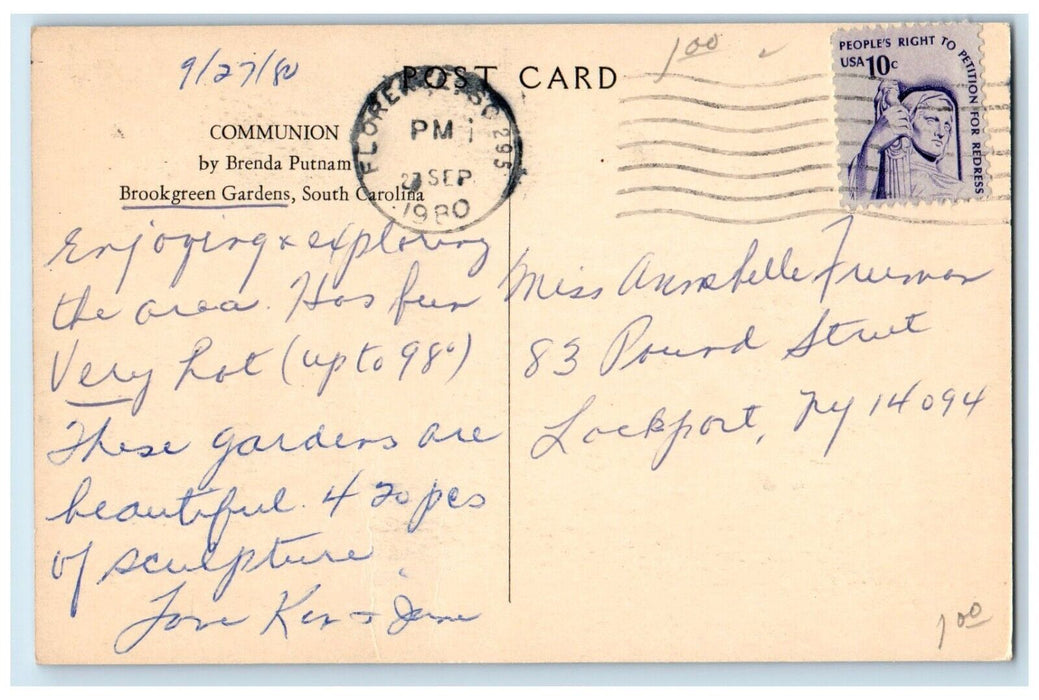 9/27/80
POST CARD
1.00
PEOPLE'S RIGHT TO PETITION FOR REDRESS
USA 10c
FLORENCE, SC 295
PM
27 SEP
1980
COMMUNION
by Brenda Putnam
Brookgreen Gardens, South Carolina
Enjoying & exploring
the area. Has been
Very hot (up to 98°)
These gardens are
beautiful. 420 pcs
of sculpture
Love Ken & Jane
Miss Annabelle Freeman
83 Pound Street
Lockport, NY 14094
1.00